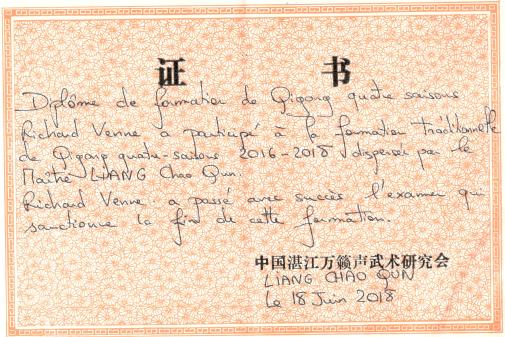 证 书
Diplôme de formation de Qigong quatre saisons
Richard Venne a participé à la formation traditionnelle
de Qigong quatre-saisons 2016-2018 dispensée par le
Maître LIANG Chao Qun.
Richard Venne a passé avec succès l'examen qui
sanctionne la fin de cette formation.
中国湛江万籁声武术研究会
LIANG CHAO QUN
Le 18 Juin 2018